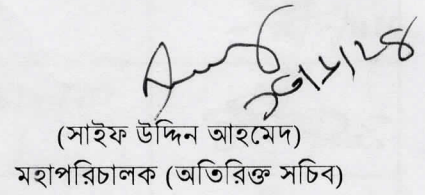 (সাইফ উদ্দিন আহমেদ)
মহাপরিচালক (অতিরিক্ত সচিব)